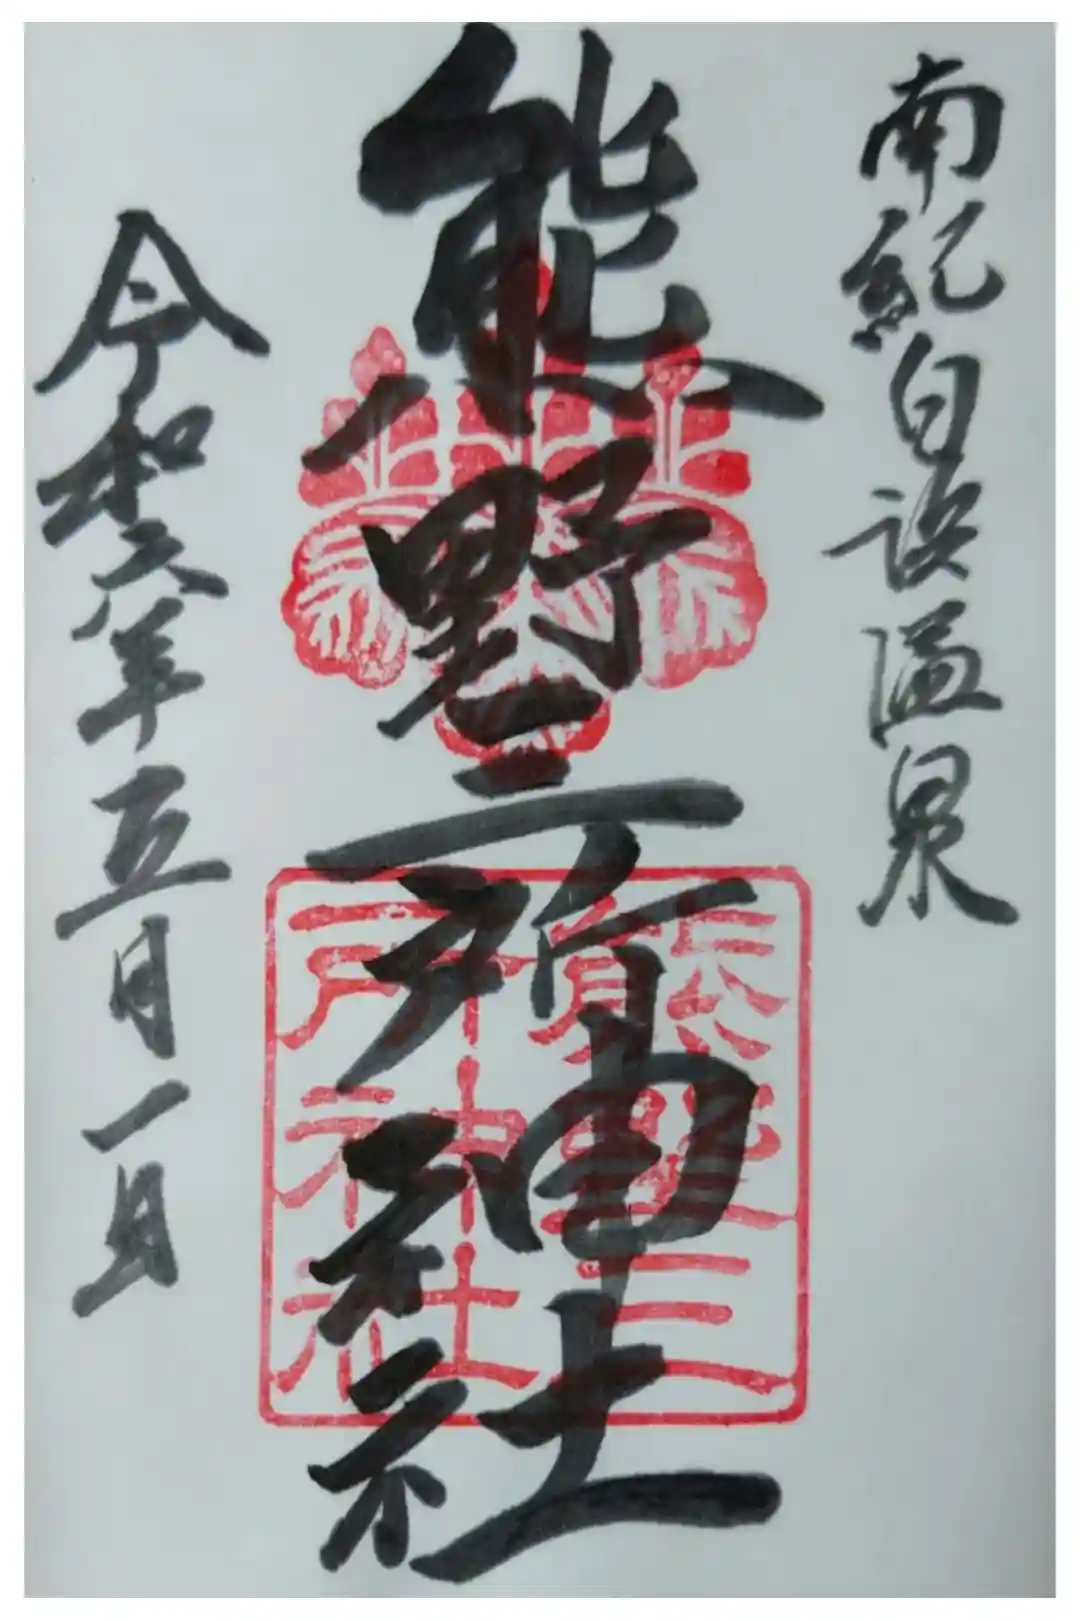 南紀白浜温泉
熊野三所神社
令和六年五月一日
熊野三
所神社